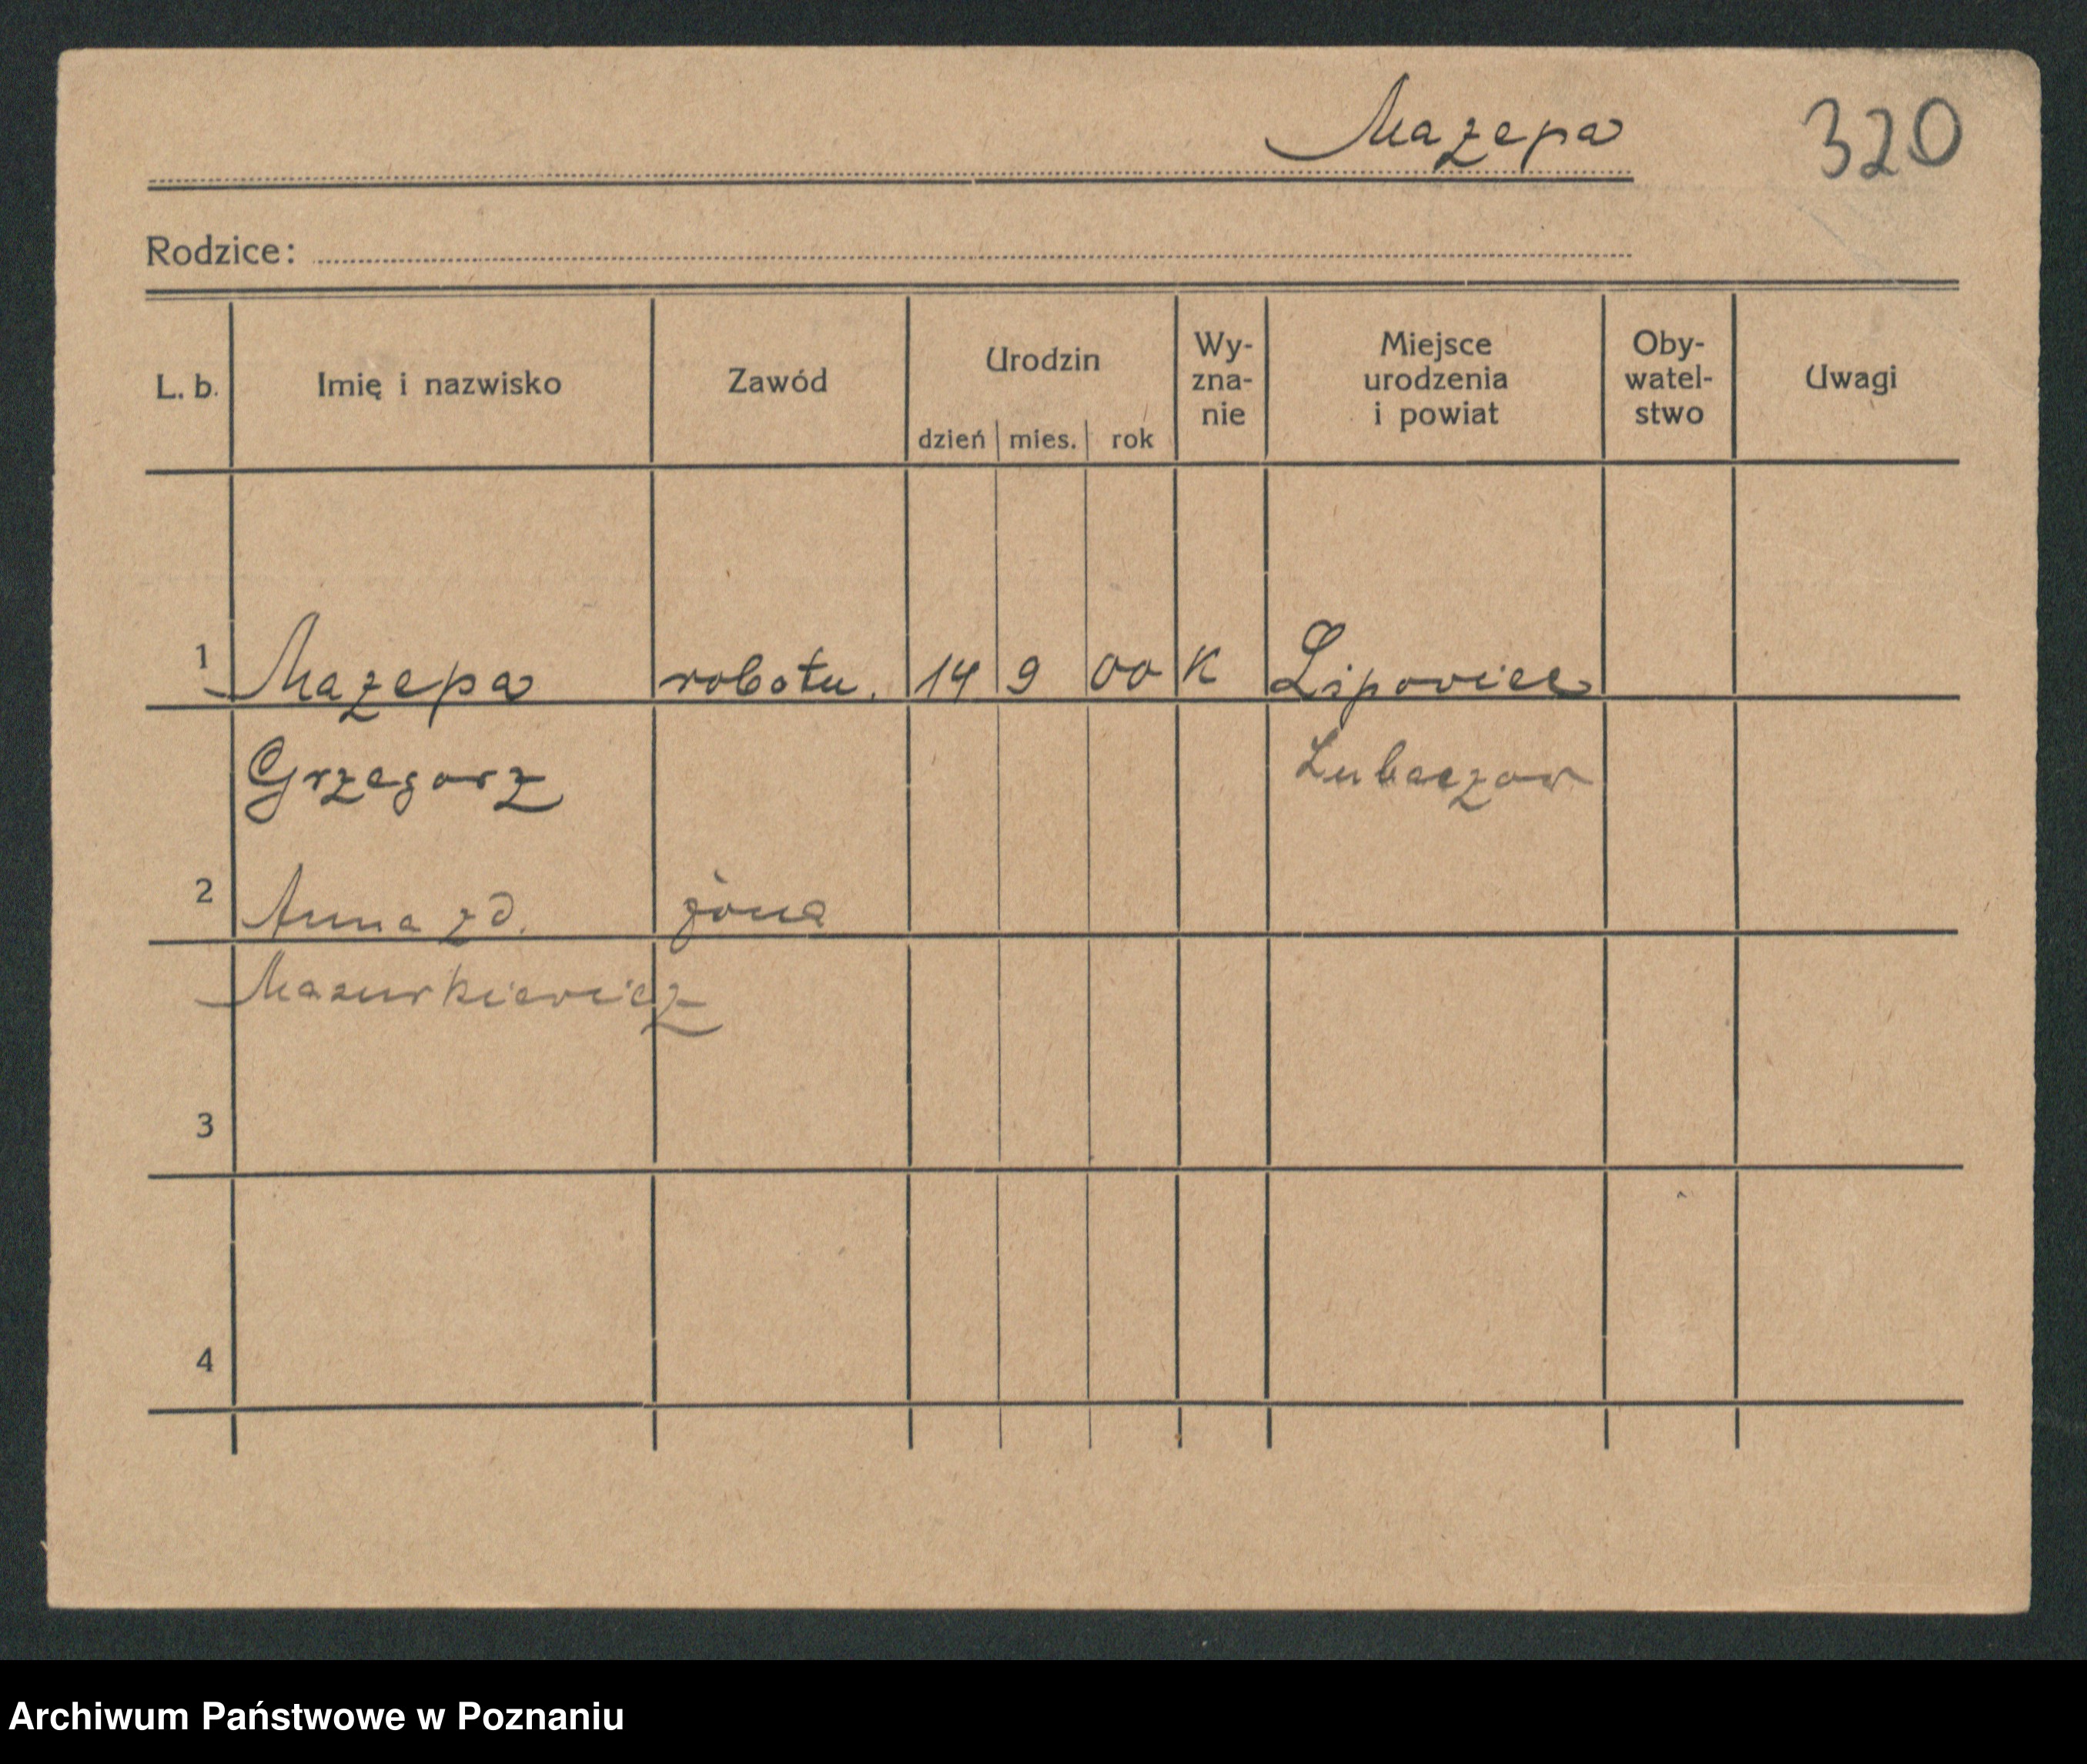 Mazepa
320
Rodzice:
L. b. Imię i nazwisko Zawód Urodzin dzień mies. rok Wy-zna-nie Miejsce urodzenia i powiat Oby-watel-stwo Uwagi
1 Mazepa robotn. 14 9 00 K Lipowiec
Grzegorz Lubaczow
2 Anna zd. żona
Mazurkiewicz
3
4
Archiwum Państwowe w Poznaniu